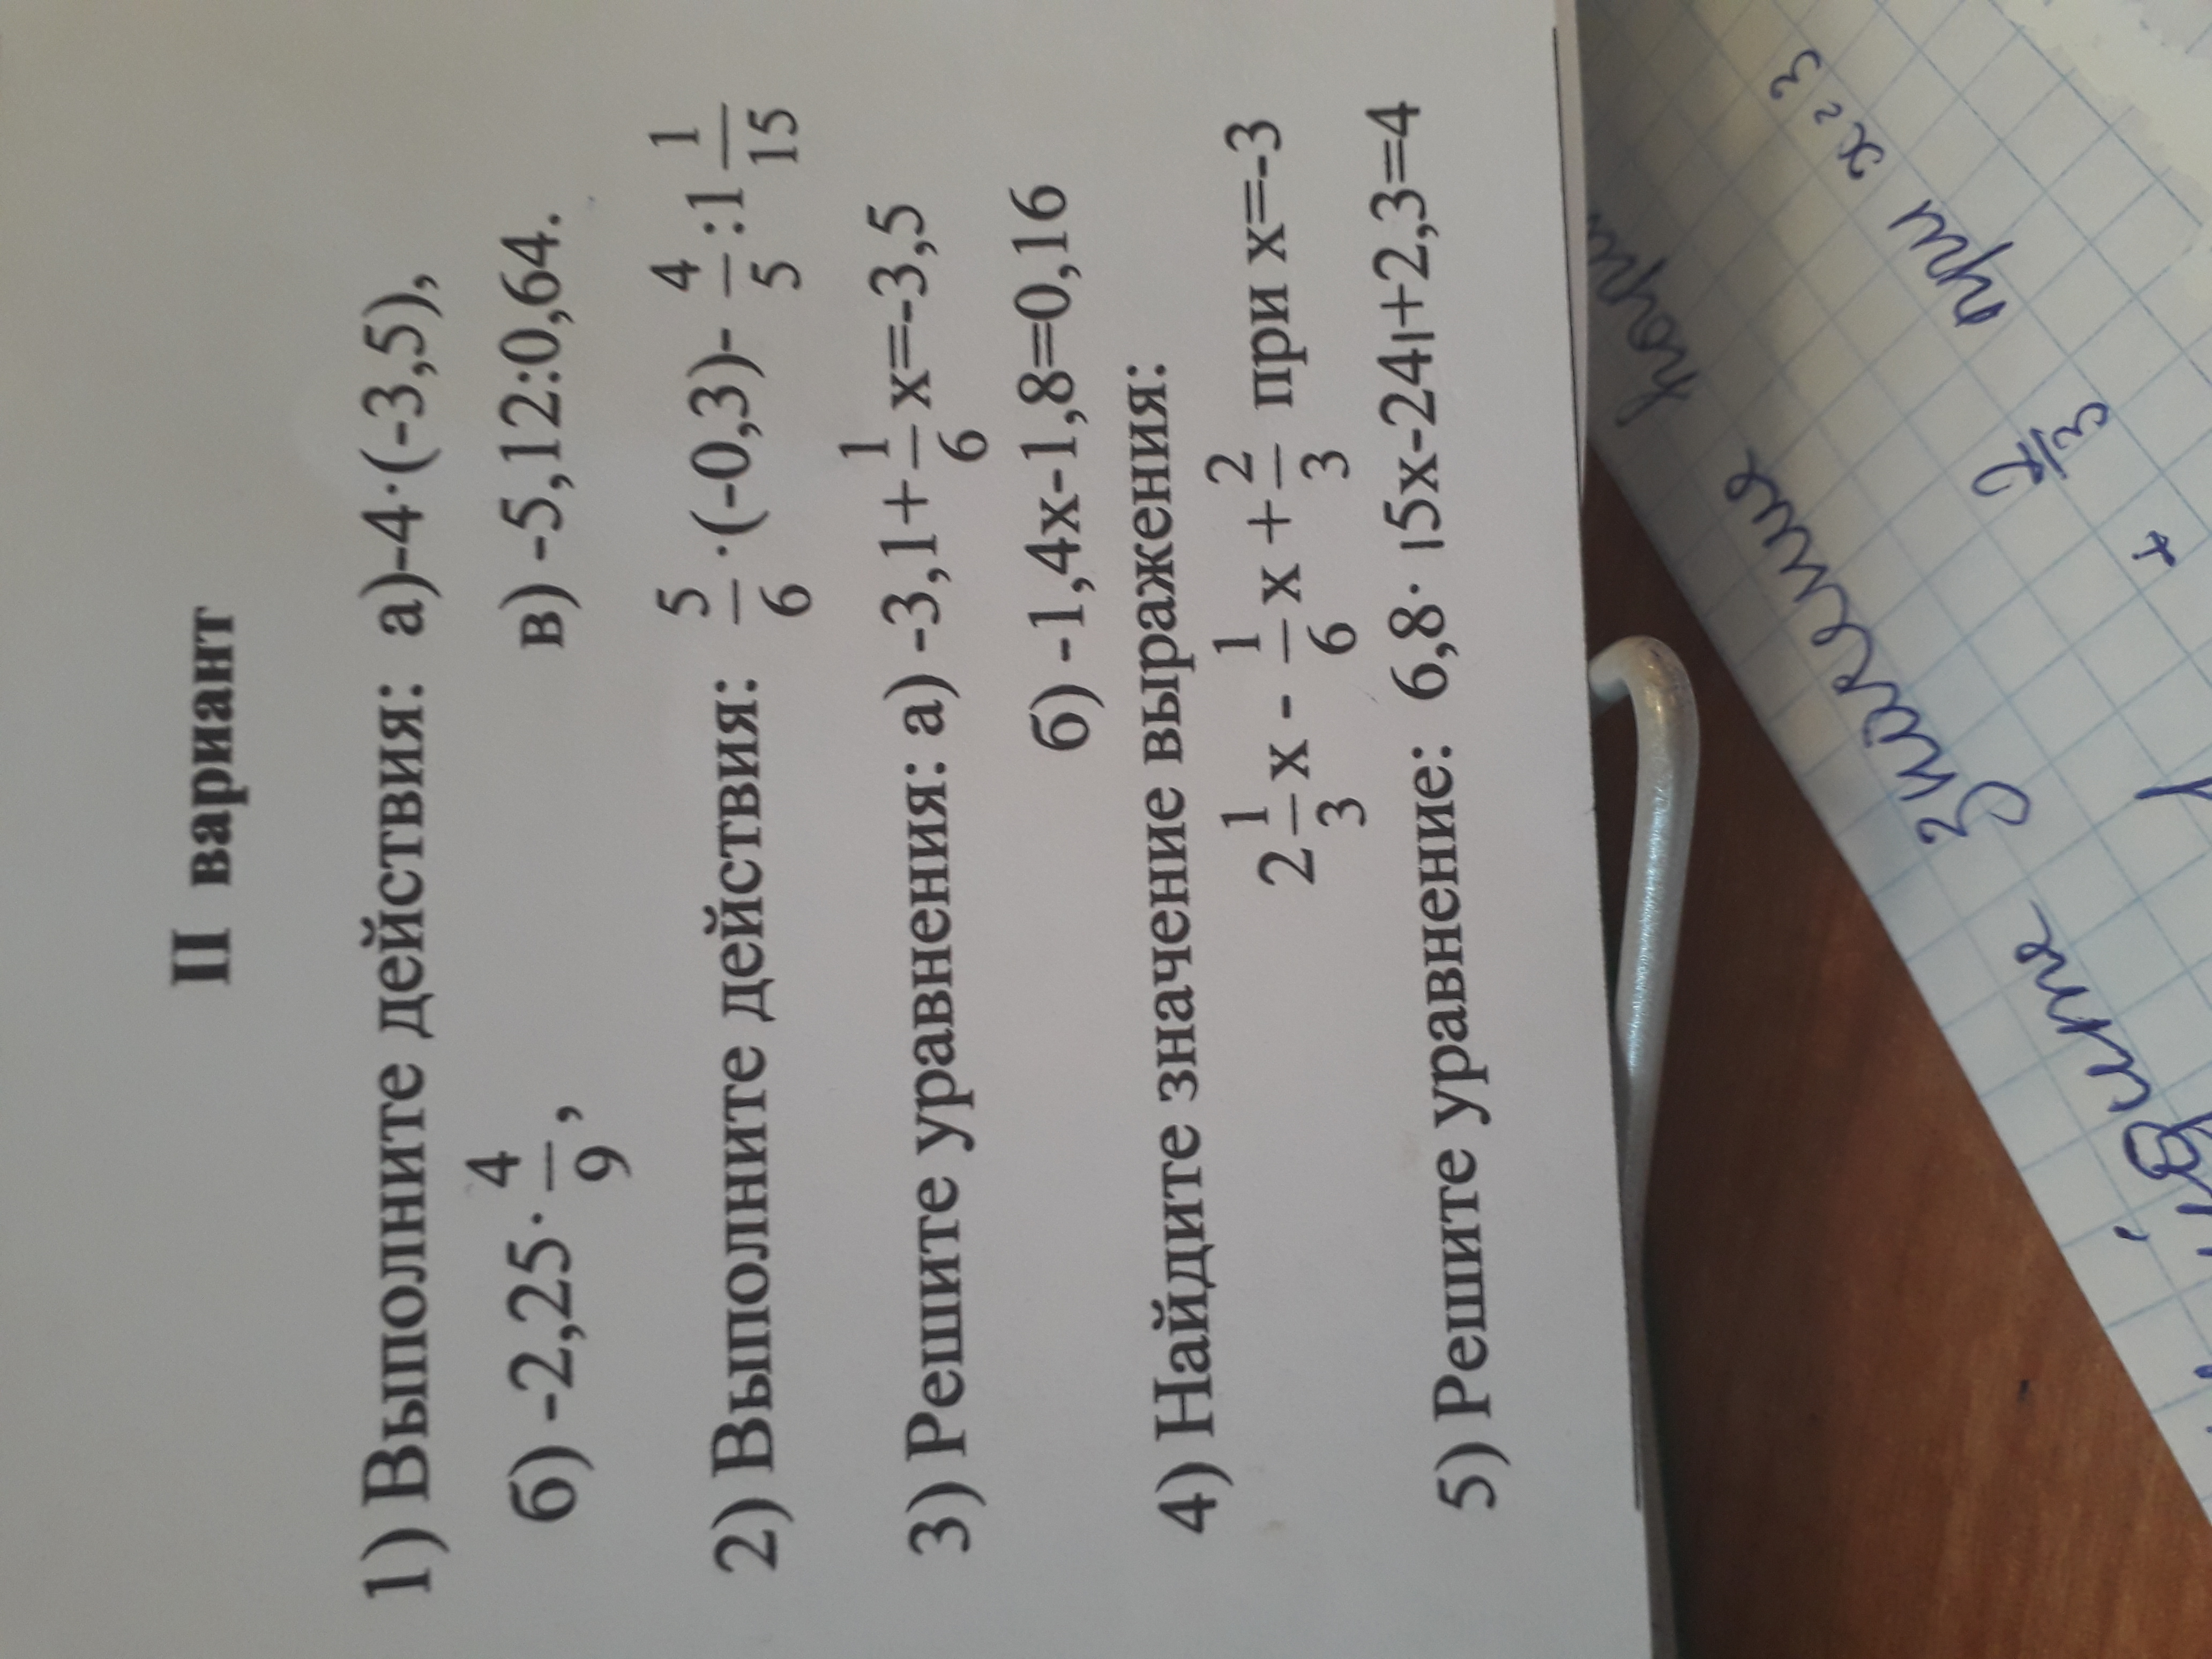 II вариант
1) Выполните действия: а)-4·(-3,5),
б) -2,25·4/9, в) -5,12:0,64.
2) Выполните действия: 5/6·(-0,3)-4/5:1 1/15
3) Решите уравнения: а) -3,1+1/6x=-3,5
б) -1,4x-1,8=0,16
4) Найдите значение выражения:
2 1/3x - 1/6x+2/3 при x=-3
5) Решите уравнение: 6,8· |5x-24|+2,3=4
значение
+ 2/3 при x=3